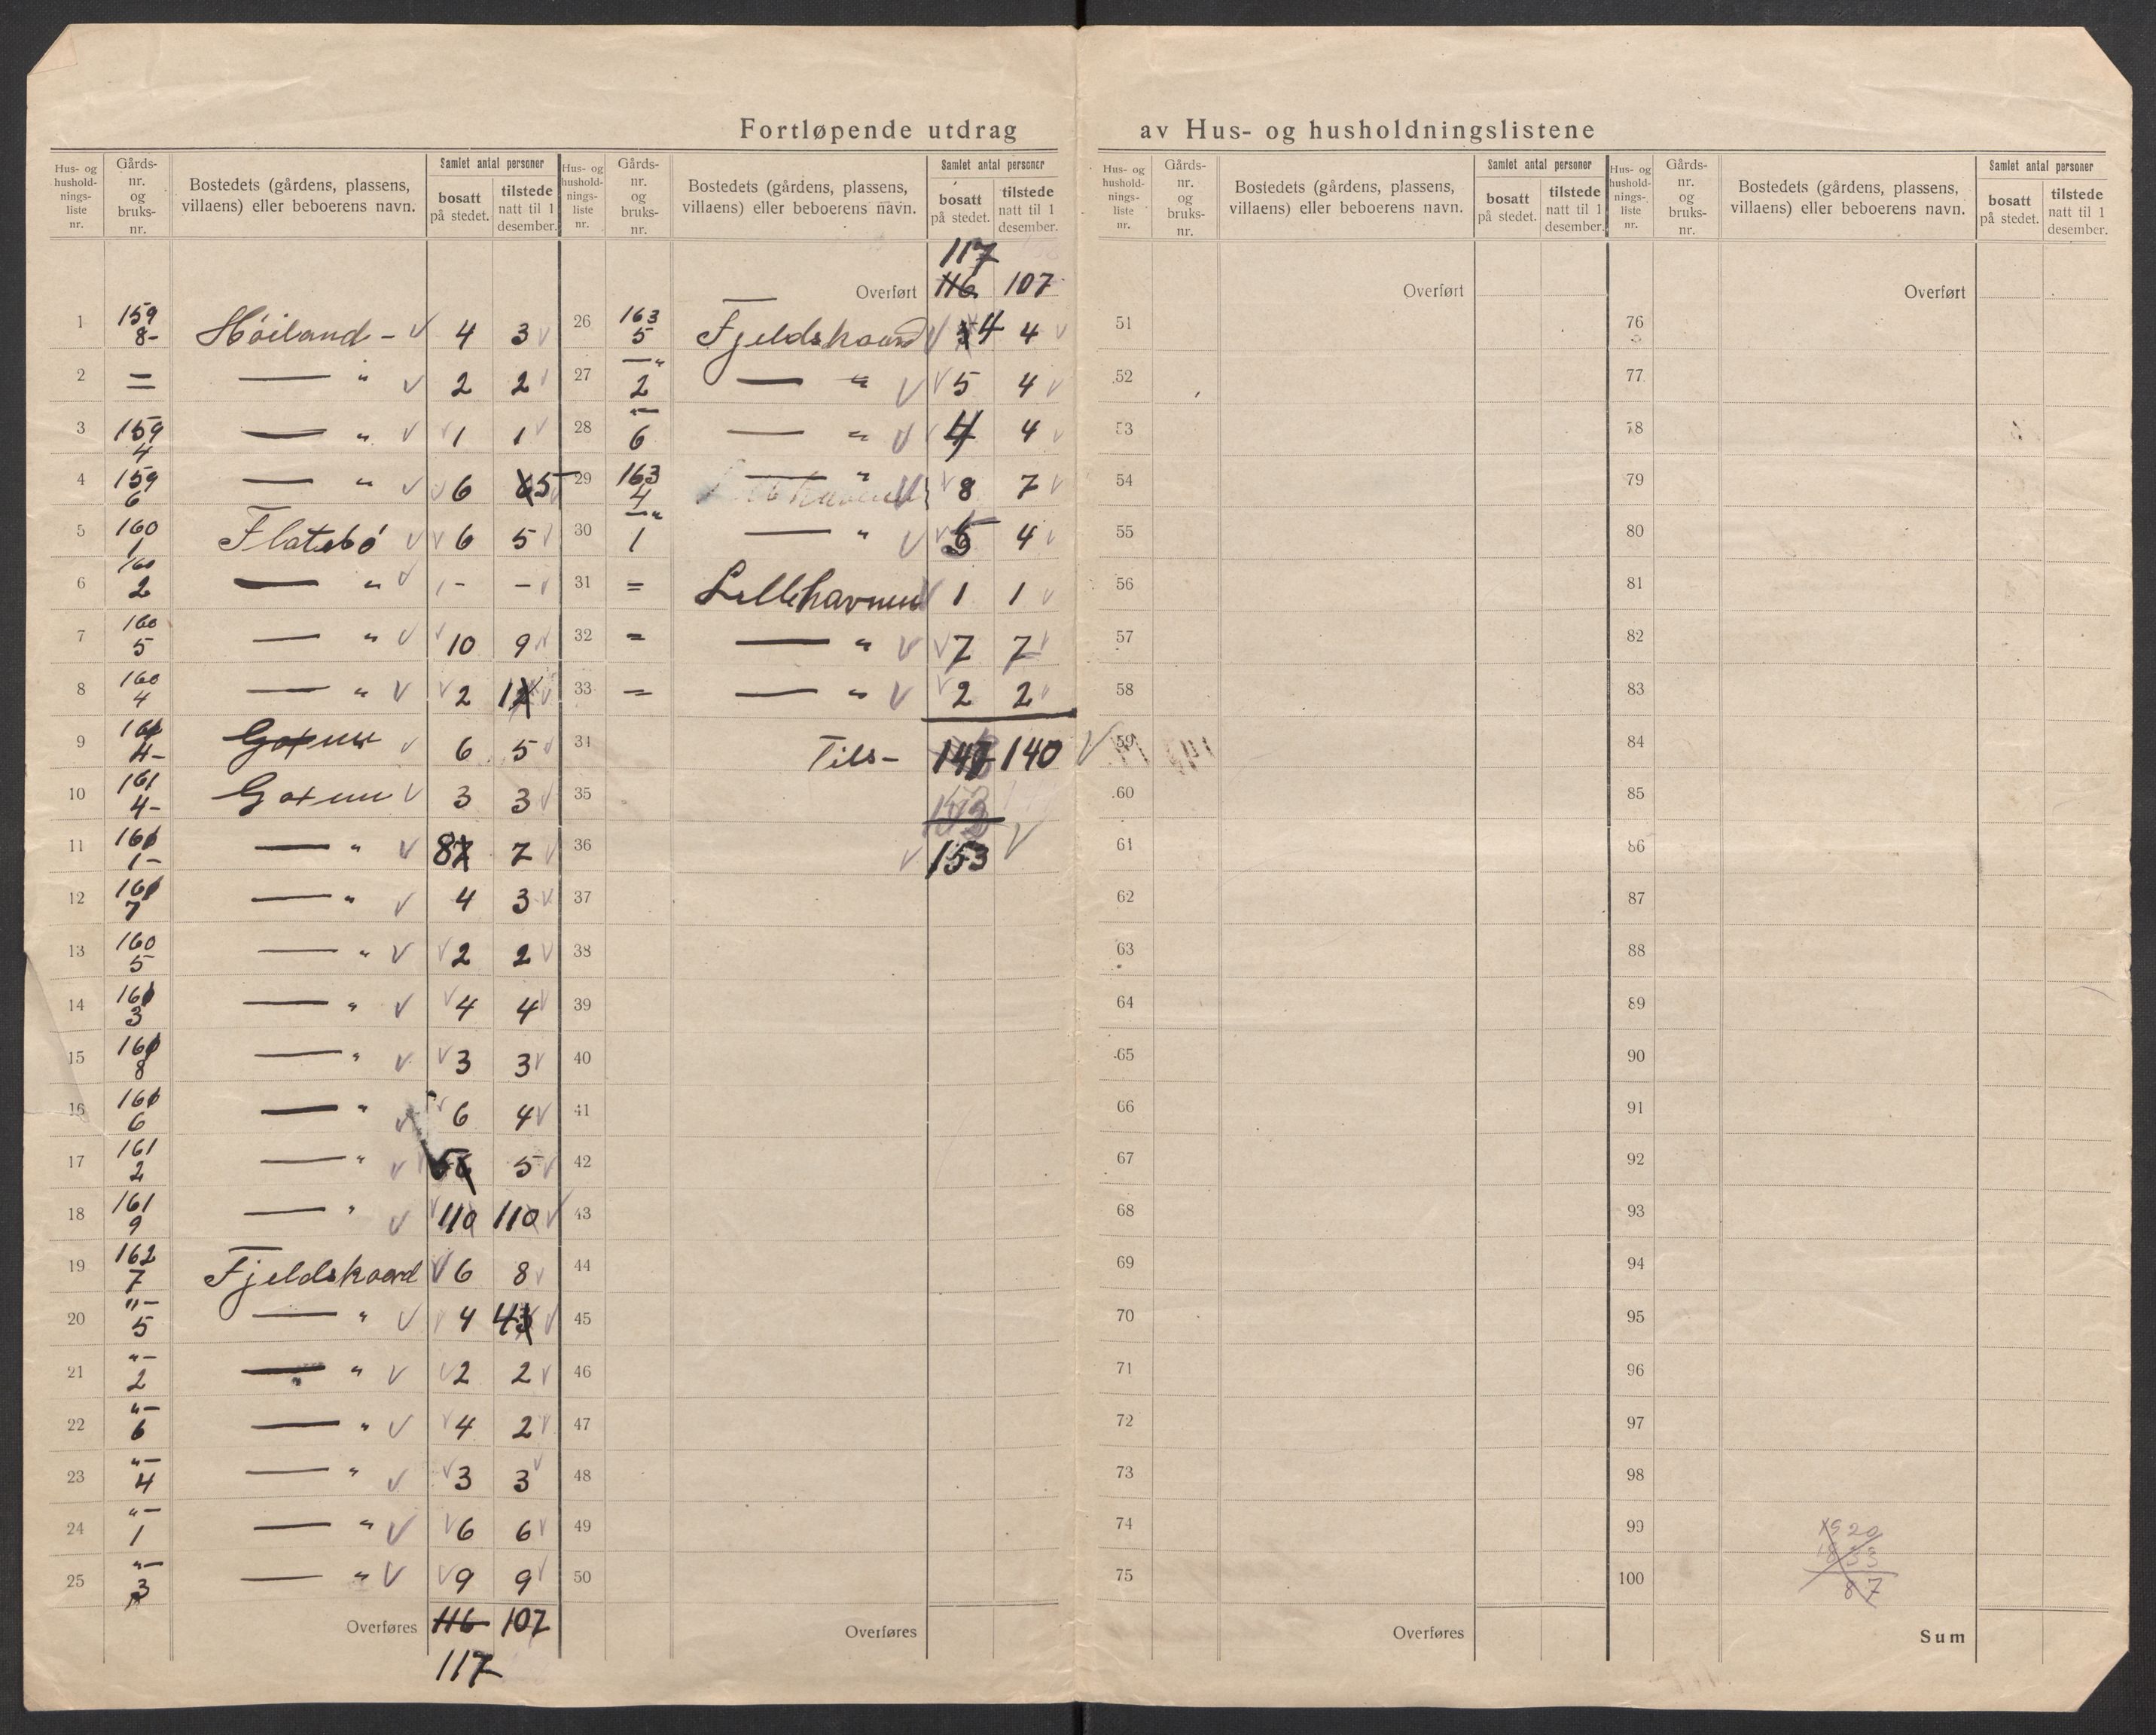 Fortløpende utdrag av Hus- og husholdningslistene
Hus- og hushold-nings-liste nr. | Gårds-nr. og bruks-nr. | Bostedets (gårdens, plassens, villaens) eller beboerens navn. | Samlet antal personer | bosatt på stedet. | tilstede natt til 1 desember.
1 159 8- Höiland - √ 4 3 √
2 = — " √ 2 2 √
3 159 4 — " √ √ 1 1 √
4 159 6 — " √ √ 6 5 √
5 160 1 Flatebö √ √ 6 5 √
6 160 2 — " √ - - √
7 160 5 — " √ √ 10 9 √
8 160 4 — " √ √ 2 1 √
9 4- √ 6 5 √
10 161 4- √ 3 3 √
11 161 1- — " √ 8 7 √
12 161 7 — " √ 4 3 √
13 160 5 — " √ √ 2 2 √
14 161 3 — " √ √ 4 4 √
15 161 8 — " √ √ 3 3 √
16 161 6 — " √ √ 6 4 √
17 161 2 — " √ 5 √
18 161 9 — " √ √ 11 11 √
19 162 7 Fjeldskaard √ 6 8 √
20 "- 5 — " √ 4 4 √
21 "- 2 — " √ √ 2 2 √
22 "- 6 — " √ √ 4 2 √
23 "- 4 — " √ √ 3 3 √
24 "- 1 — " √ √ 6 6 √
25 "- 3 — " √ √ 9 9 √
Overføres 116 107
117
Hus- og hushold-nings-liste nr. | Gårds-nr. og bruks-nr. | Bostedets (gårdens, plassens, villaens) eller beboerens navn. | Samlet antal personer | bosatt på stedet. | tilstede natt til 1 desember.
117
Overført 116 107
26 163 5 Fjeldskaard √ 4 4 √
27 —" 2 — " √ √ 5 4 √
28 6 — " √ 4 4 √
29 163 4 — " √ 8 7 √
30 —" 1 — " √ √ 5 4 √
31 = Lillehavnen √ 1 1 √
32 = — " √ √ 7 7 √
33 = — " √ √ 2 2 √
34 Tils- 140 √
35
36 √ 153 √
37
38
39
40
41
42
43
44
45
46
47
48
49
50
Overføres
Hus- og hushold-nings-liste nr. | Gårds-nr. og bruks-nr. | Bostedets (gårdens, plassens, villaens) eller beboerens navn. | Samlet antal personer | bosatt på stedet. | tilstede natt til 1 desember.
Overført
51
52
53
54
55
56
57
58
59
60
61
62
63
64
65
66
67
68
69
70
71
72
73
74
75
Overføres
Hus- og hushold-nings-liste nr. | Gårds-nr. og bruks-nr. | Bostedets (gårdens, plassens, villaens) eller beboerens navn. | Samlet antal personer | bosatt på stedet. | tilstede natt til 1 desember.
Overført
76
77
78
79
80
81
82
83
84
85
86
87
88
89
90
91
92
93
94
95
96
97
98
99 1920
1833
100 87
Sum